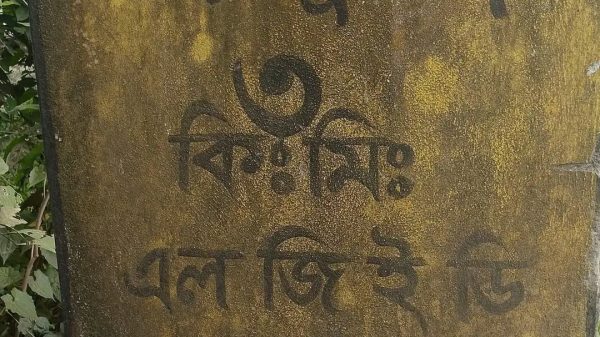 ৩
কিঃমিঃ
এল জি ই ডি